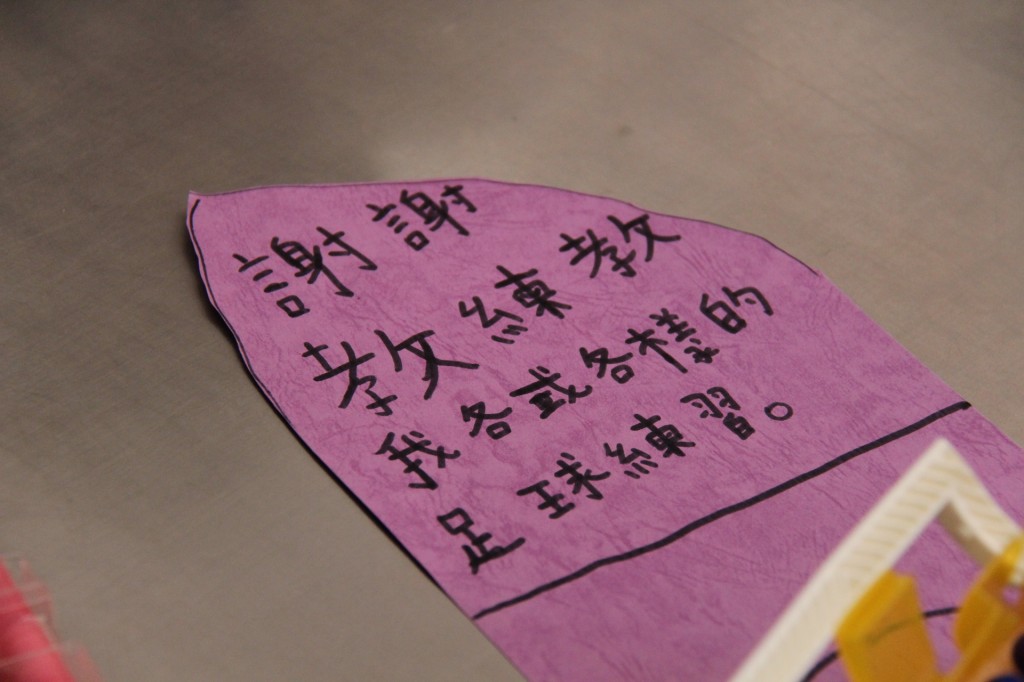 謝謝
教練教
我各或各樣的
足球練習。